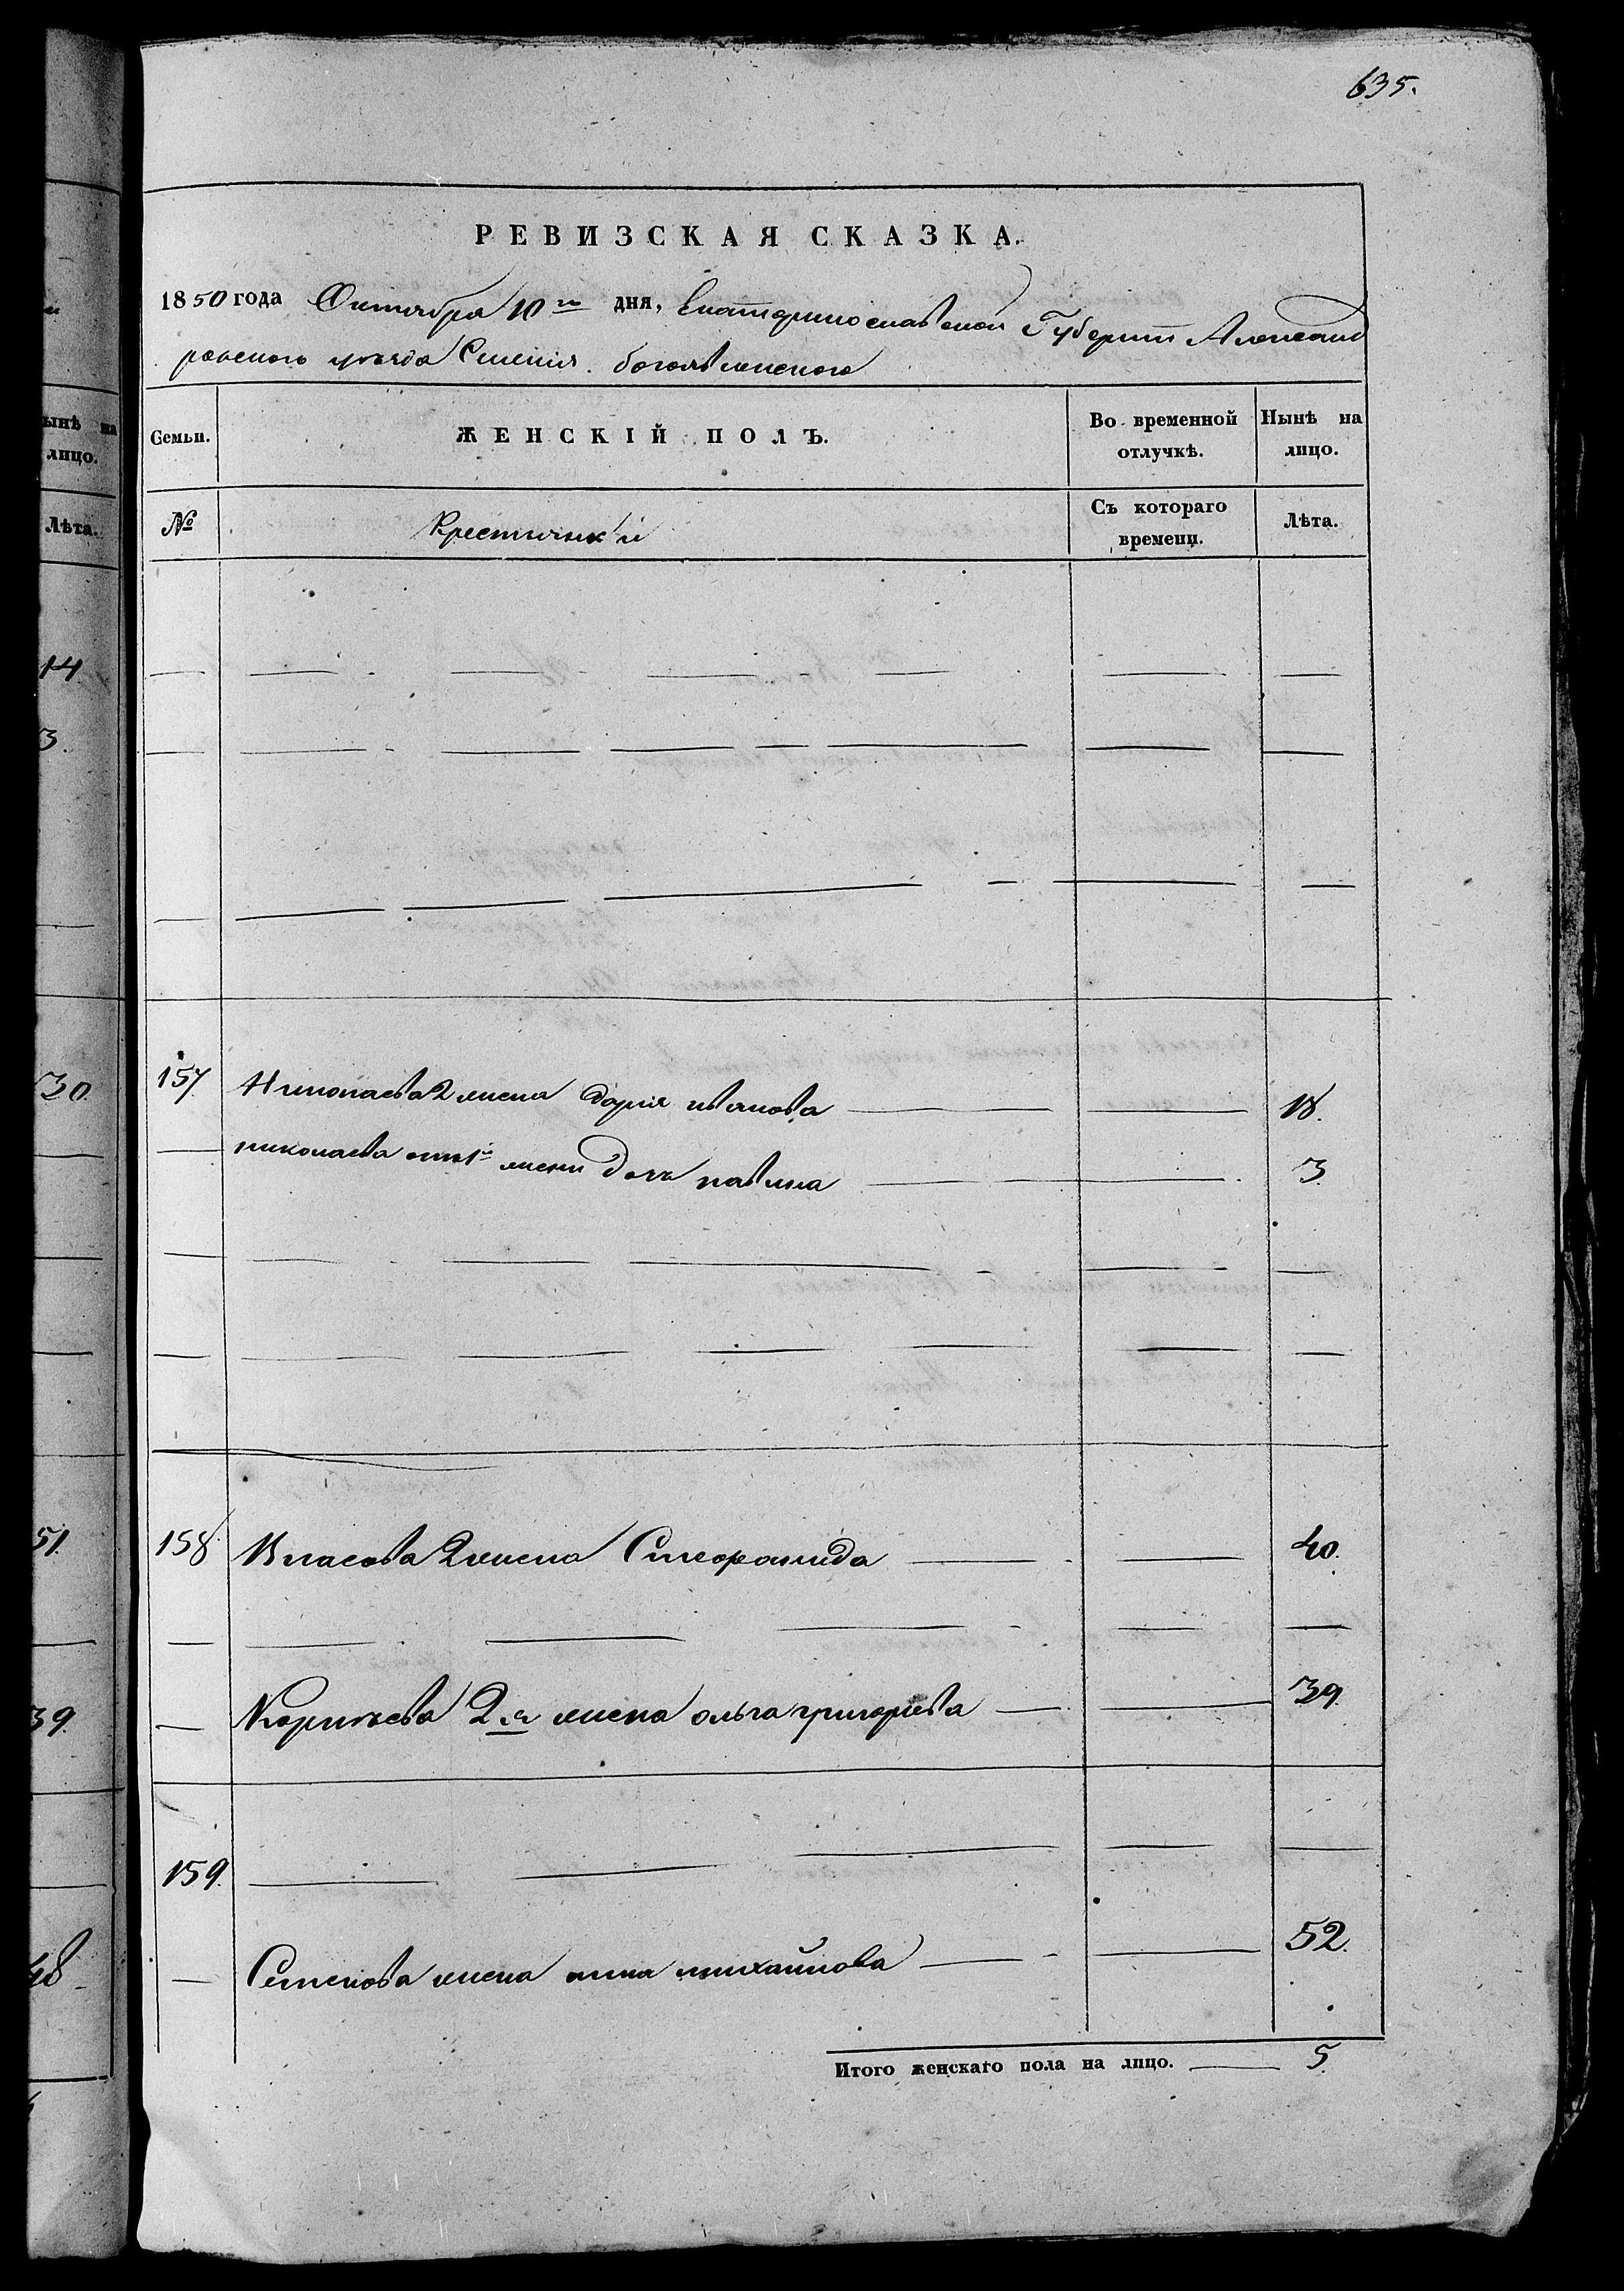 635.
РЕВИЗСКАЯ СКАЗКА.
1850 года Октября 10го дня, Екатеринославской Губернии Александ
ровского уезда Селения богоявленского
Семьи. ЖЕНСКІЙ ПОЛЪ. Во временной отлучкѣ. Нынѣ на лицо.
№ Крестьянк Съ котораго времени. Лѣта.
157 Николаева 2 жена дария иванова 18.
николаева от 1й жени дочь павлина 3
158 Власова 2 жена 40.
2я жена олга григориева 39.
159.
Семенова жена анна михайлова 52.
Итого женскаго пола на лицо. 5.
ынѣ на
лицо.
Лѣта.
14
3.
30.
51.
39.
48